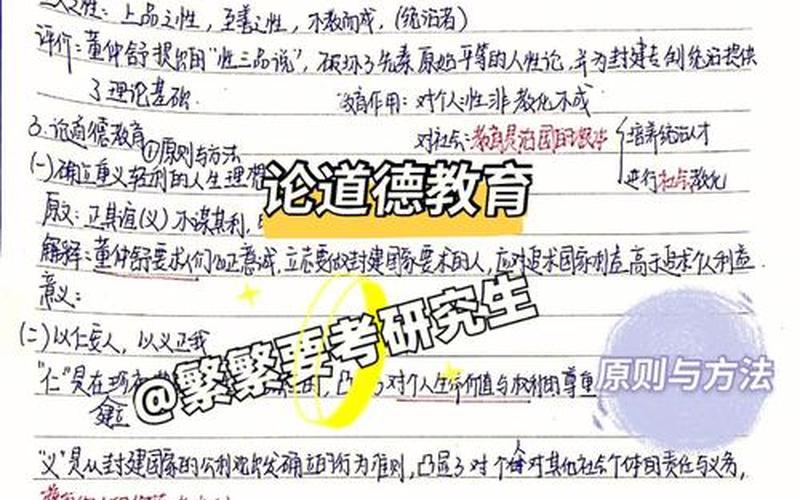 上品之性，至善之性，不教而成，(统治者)
评价：董仲舒提出的"性三品说"，破坏了先秦原始平等的人性论，并为封建专制统治提供
了理论基础。
教育作用：对个人：性非教化不成
3.论道德教育
对社会：教育是治国的
培养统治人才
①原则与方法
(一)确立重义轻利的人生理想
进行社会教化
论道德教育
原文：正其谊(义)不谋其利，
解释：董仲舒要求人们正意诚，立志要做封建国家要求的人，应对追求国家利益高于追求个人利益.
意义：
(二)以仁安人，以义正我
@繁繁要考研究生
原则与方法
"仁"是在 对个人生命价值与权利的尊重
"义"是从封建国家的公利观出发确立的行为准则，凸显了对个体对其他社会个体间责任与义务，